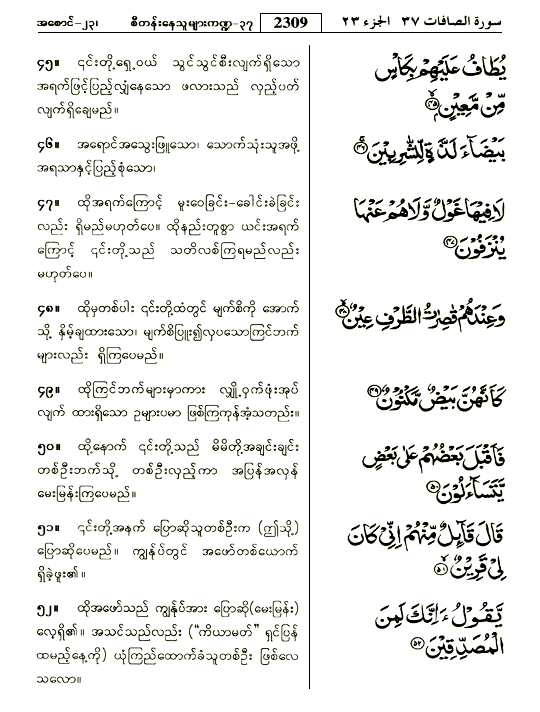 အစောင်-၂၃၊ စီတန်းနေသူများကဏ္ဍ-၃၇ 2309 سورة الصافات ٣٧ الجزء ٢٣
၄၅။ ၎င်းတို့ရှေ့ဝယ် သွင်သွင်စီးလျက်ရှိသော
အရက်ဖြင့်ပြည့်လျှံနေသော ဖလားသည် လှည့်ပတ်
လျက်ရှိချေမည်။
يُطَافُ عَلَيْهِمْ بِكَأْسٍ
مِّنْ مَّعِيْنٍۭ ﴿٤٥﴾
၄၆။ အရောင်အသွေးဖြူသော၊ သောက်သုံးသူအဖို့
အရသာနှင့်ပြည့်စုံသော၊
بَيْضَآءَ لَذَّةٍ لِّلشّٰرِبِيْنَ ﴿٤٦﴾
၄၇။ ထိုအရက်ကြောင့် မူးဝေခြင်း-ခေါင်းခဲခြင်း
လည်း ရှိမည်မဟုတ်ပေ။ ထိုနည်းတူစွာ ယင်းအရက်
ကြောင့် ၎င်းတို့သည် သတိလစ်ကြရမည်လည်း
မဟုတ်ပေ။
لَا فِيْهَا غَوْلٌ وَّلَا هُمْ عَنْهَا
يُنْزَفُوْنَ ﴿٤٧﴾
၄၈။ ထိုမှတစ်ပါး ၎င်းတို့ထံတွင် မျက်စိကို အောက်
သို့ နှိမ့်ချထားသော၊ မျက်စိပြူး၍လှပသောကြင်ဘက်
များလည်း ရှိကြပေမည်။
وَعِنْدَهُمْ قٰصِرٰتُ الطَّرْفِ عِيْنٌ ﴿٤٨﴾
၄၉။ ထိုကြင်ဘက်များမှာကား လျှို့ဝှက်ဖုံးအုပ်
လျက် ထားရှိသော ဥများပမာ ဖြစ်ကြကုန်အံ့သတည်း။
كَاَنَّهُنَّ بَيْضٌ مَّكْنُوْنٌ ﴿٤٩﴾
၅၀။ ထို့နောက် ၎င်းတို့သည် မိမိတို့အချင်းချင်း
တစ်ဦးဘက်သို့ တစ်ဦးလှည့်ကာ အပြန်အလှန်
မေးမြန်းကြပေမည်။
فَاَقْبَلَ بَعْضُهُمْ عَلٰى بَعْضٍ
يَّتَسَآءَلُوْنَ ﴿٥٠﴾
၅၁။ ၎င်းတို့အနက် ပြောဆိုသူတစ်ဦးက (ဤသို့)
ပြောဆိုပေမည်။ ကျွန်ုပ်တွင် အဖော်တစ်ယောက်
ရှိခဲ့ဖူး၏။
قَالَ قَآئِلٌ مِّنْهُمْ اِنِّىْ كَانَ
لِىْ قَرِيْنٌ ﴿٥١﴾
၅၂။ ထိုအဖော်သည် ကျွန်ုပ်အား ပြောဆို(မေးမြန်း)
လေ့ရှိ၏။ အသင်သည်လည်း (“ကိယာမတ်” ရှင်ပြန်
ထမည့်နေ့ကို) ယုံကြည်ထောက်ခံသူတစ်ဦး ဖြစ်လေ
သလော။
يَّقُوْلُ ءَاِنَّكَ لَمِنَ
الْمُصَدِّقِيْنَ ﴿٥٢﴾